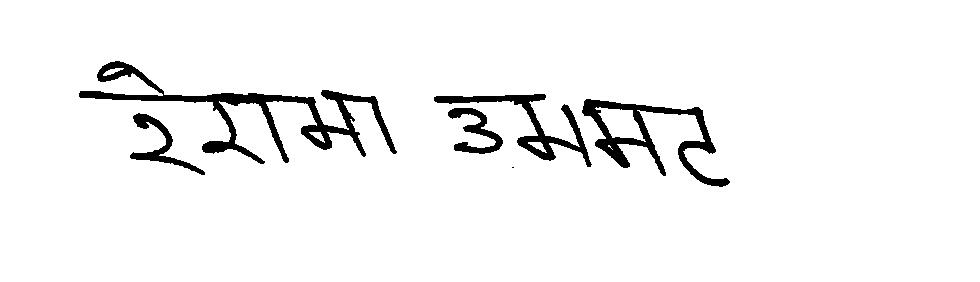 रेशमा उममट